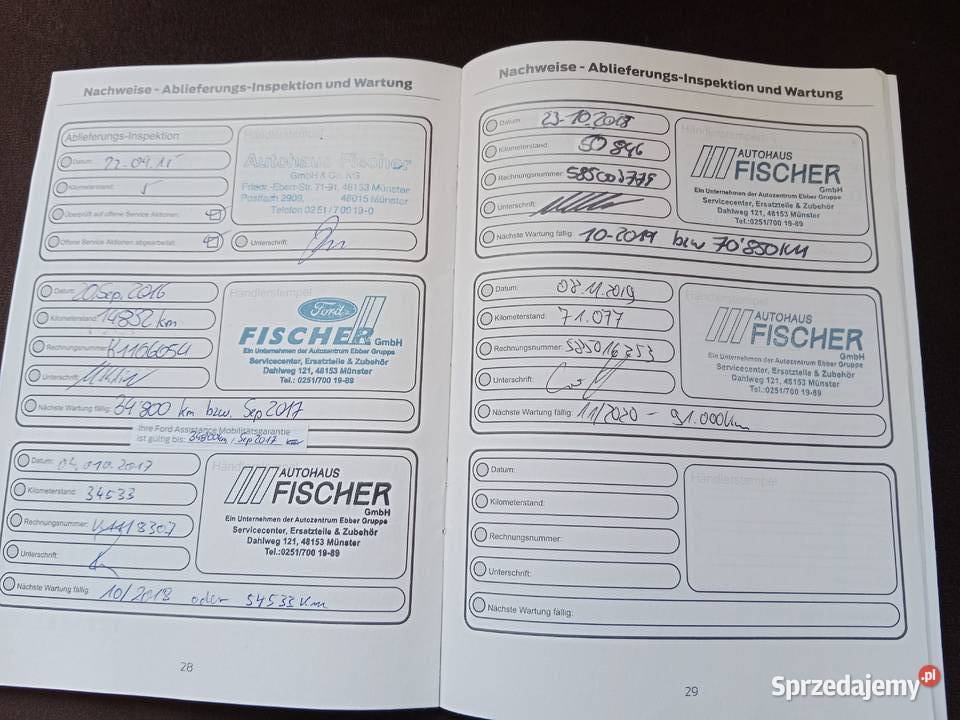 Nachweise - Ablieferungs-Inspektion und Wartung
Ablieferungs-Inspektion
Händlerstempel
Datum: 23-04.15
Kilometerstand: 5
Überprüft auf offene Service Aktionen:
Offene Service Aktionen abgearbeitet:
Autohaus Fischer
GmbH & Co. KG
Friedr.-Ebert-Str. 71-91, 48153 Münster
Postfach 2909, 48015 Münster
Telefon 0251/7009 19-0
Unterschrift:
Datum: 20 Sep. 2016
Kilometerstand: 14852 km
Rechnungsnummer: K1106054
Unterschrift:
Händlerstempel
Ford
FISCHER GmbH
Ein Unternehmen der Autozentrum Ebber Gruppe
Servicecenter, Ersatzteile & Zubehör
Dahlweg 121, 48153 Münster
Tel.: 0251/700 19-89
Nächste Wartung fällig: 34800 km bzw. Sep 2017
Ihre Ford Assistance Mobilitätsgarantie
ist gültig bis: 34800km, Sep 2017
Datum: 04.010.2017
Kilometerstand: 34533
Rechnungsnummer:
Unterschrift:
Händlerstempel
AUTOHAUS
FISCHER
GmbH
Ein Unternehmen der Autozentrum Ebber Gruppe
Servicecenter, Ersatzteile & Zubehör
Dahlweg 121, 48153 Münster
Tel.:0251/700 19-89
Nächste Wartung fällig: 10/2018 oder 54533 Km
28
Nachweise - Ablieferungs-Inspektion und Wartung
Datum: 23-10.2018
Kilometerstand: 50 846
Rechnungsnummer: 585003775
Unterschrift:
Händlerstempel
AUTOHAUS
FISCHER
GmbH
Ein Unternehmen der Autozentrum Ebber Gruppe
Servicecenter, Ersatzteile & Zubehör
Dahlweg 121, 48153 Münster
Tel.:0251/700 19-89
Nächste Wartung fällig: 10-2019 bzw 70'850KM
Datum: 08.11.2019
Kilometerstand: 71.077
Rechnungsnummer: 585016353
Unterschrift:
Händlerstempel
AUTOHAUS
FISCHER
GmbH
Ein Unternehmen der Autozentrum Ebber Gruppe
Servicecenter, Ersatzteile & Zubehör
Dahlweg 121, 48153 Münster
Tel.:0251/700 19-89
Nächste Wartung fällig: 11/2020 - 91.000km
Datum:
Kilometerstand:
Rechnungsnummer:
Unterschrift:
Händlerstempel
Nächste Wartung fällig:
29
Sprzedajemy.pl